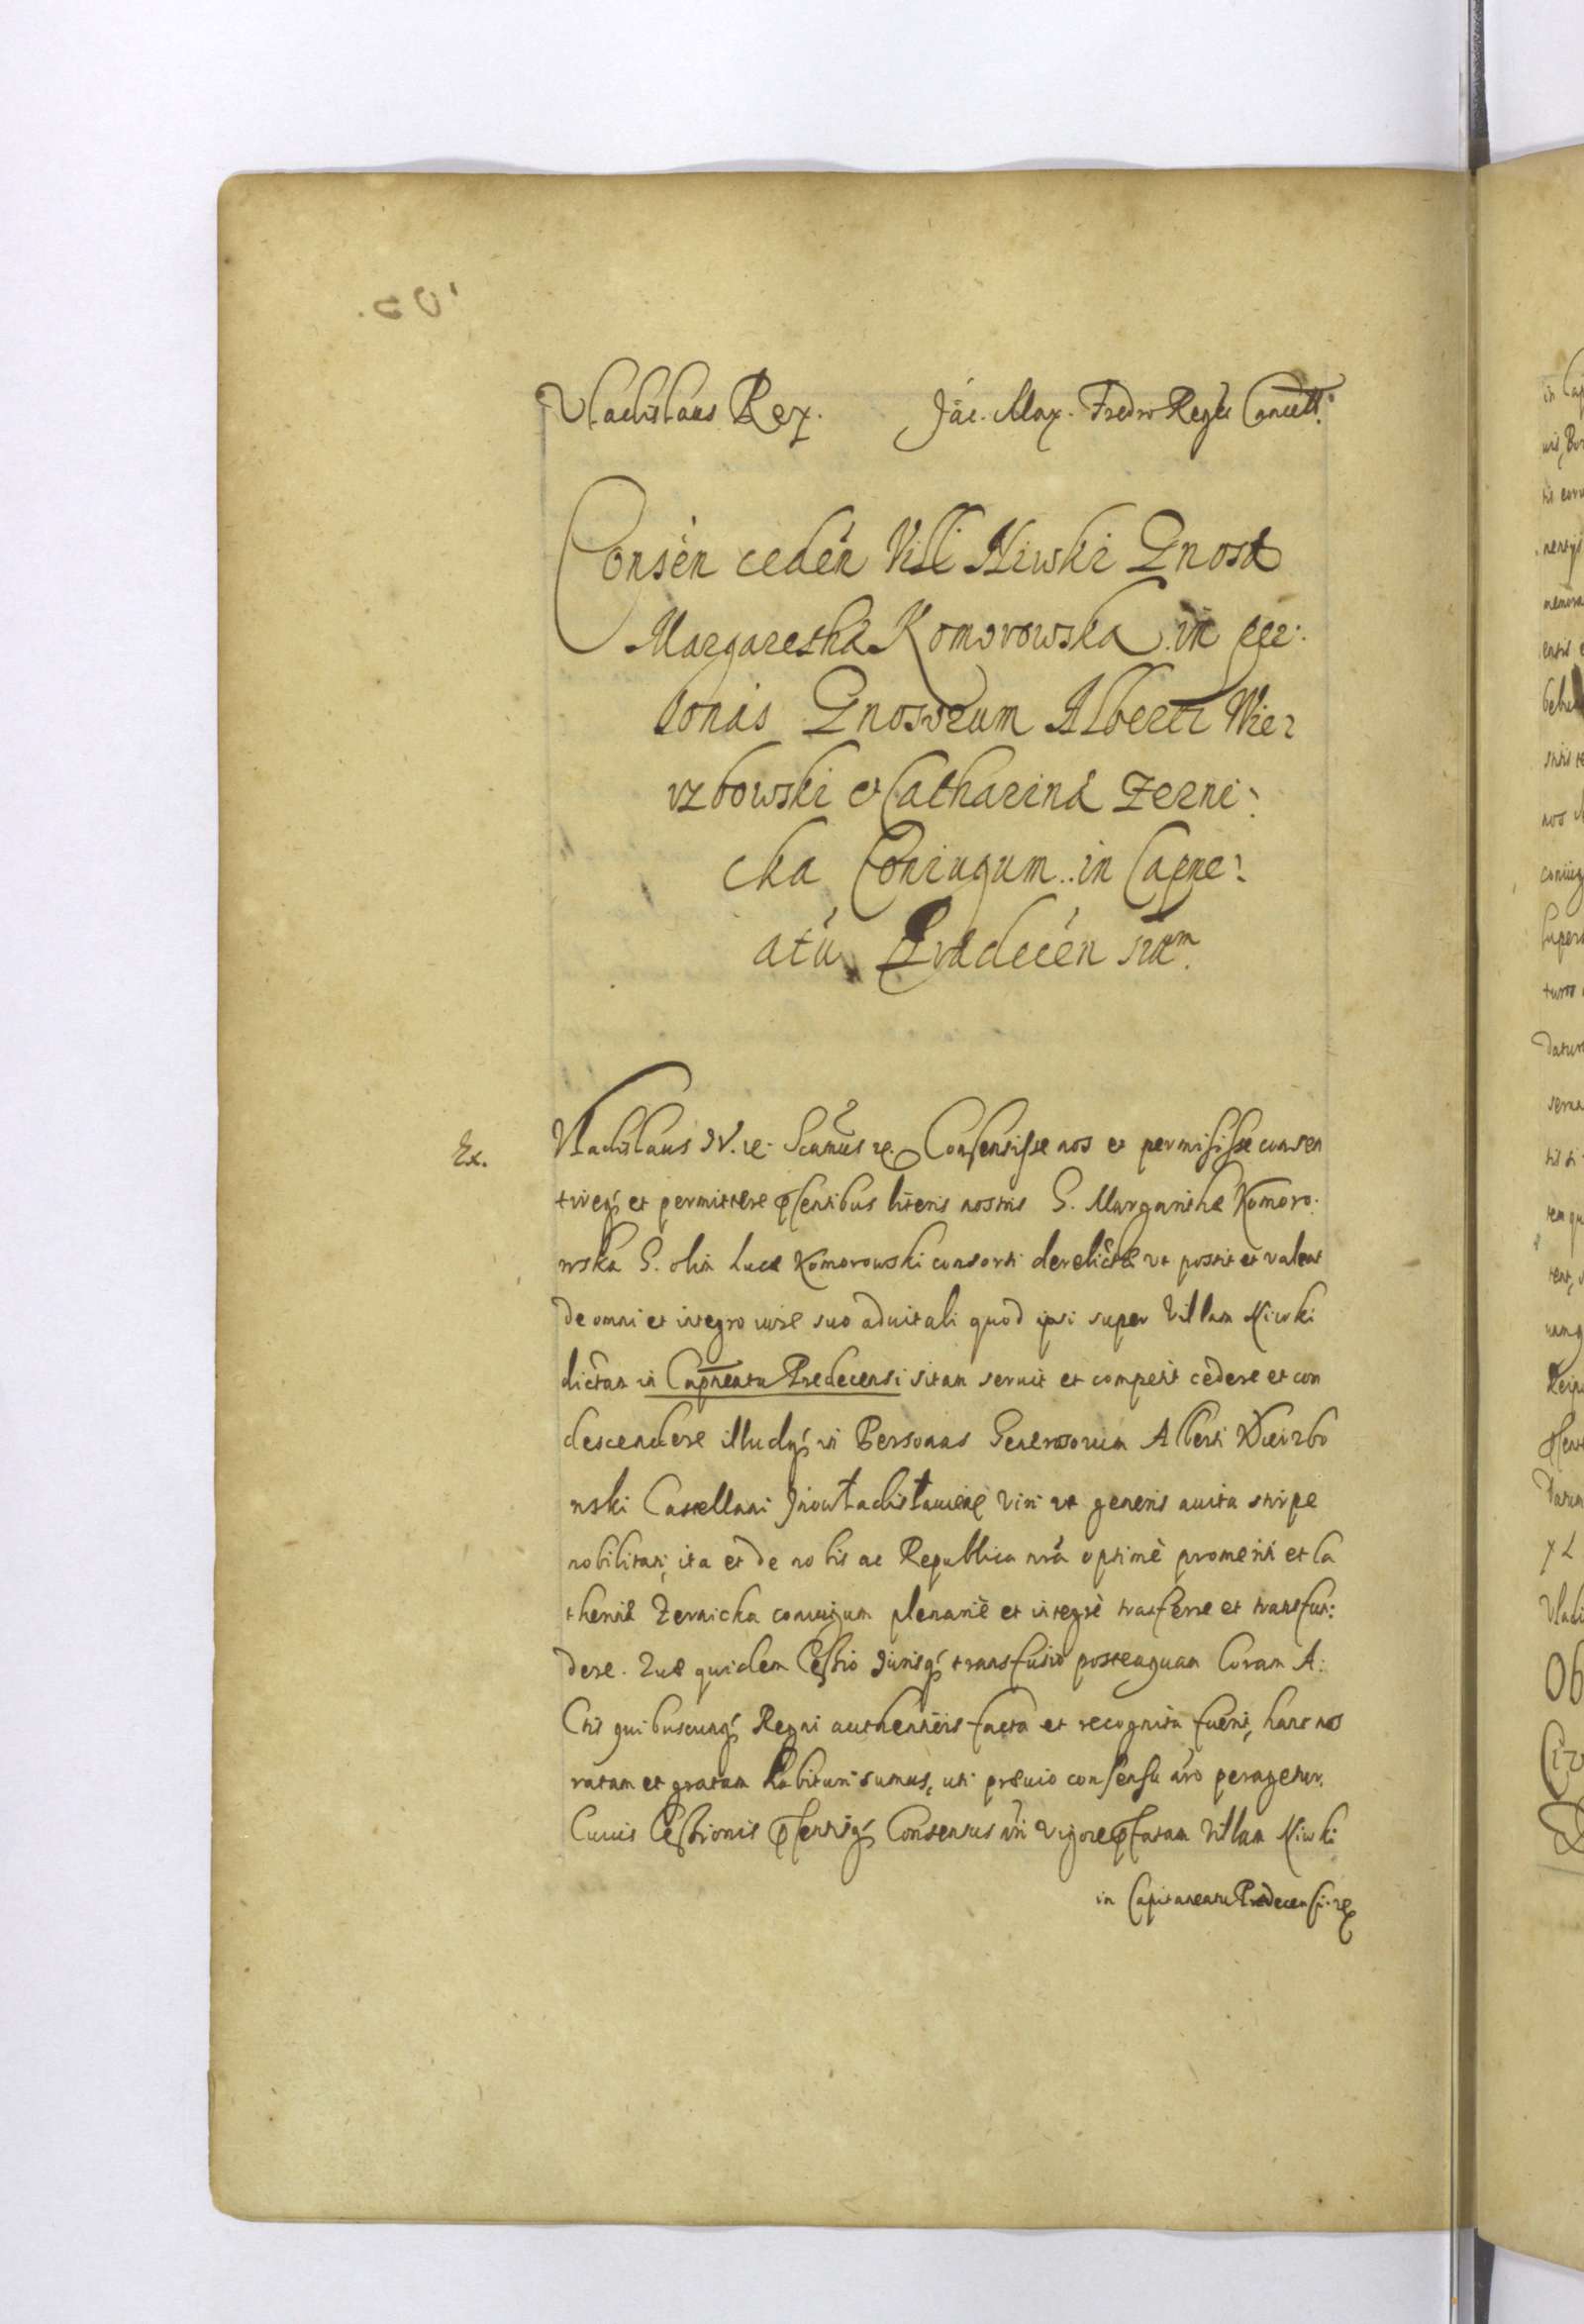 Vladislaus Rex. Jac. Max. Fredro Regës Cancell.
Consén cedén Vill Niwki Gnosæ
Margarethæ Komorowska in per:
sonas Gnosorum Alberti Wier
rzbowski et Catharinæ Zerni:
cka Coniugum in Capne:
atu Prædecén sitam.
Ex.
Vladislaus IV. rc. Scumus rc. Consensisse nos et permisisse consen
tireq et permittere pntibus literis nostris G. Margarithæ Komoro.
wska G. olim Lucæ Komorowski consorti derelictæ vt possit et valeat
de omni et integro iure suo aduitali quod ipsi super Villam Niwki
dictam in Capneatu Predecensi sitam seruit et competit cedere et con
descendere illudq in Personas Generosorum Alberti Wierzbo
wski Castellani Inowladislauieñ Viri vt generis auita stirpe
nobilitati, ita et de nobis ac Republica nrâ optimè promeriti et Ca
therinæ Zernicka coniugum plenariè et integrè trasferre et transfun:
dere. Quæ quidem Cessio Iurisq transfusio posteaquam Coram A:
Ctis quibuscunq Regni authenticis facta et recognita fuerit, hanc nos
ratam et gratam habituri sumus, uti præuio consensu nro peragetur.
Cuius Cessionis pntisq Consensus nri vigore pfatam Villam Niwki
in Capitaneatu Prædecensi rc